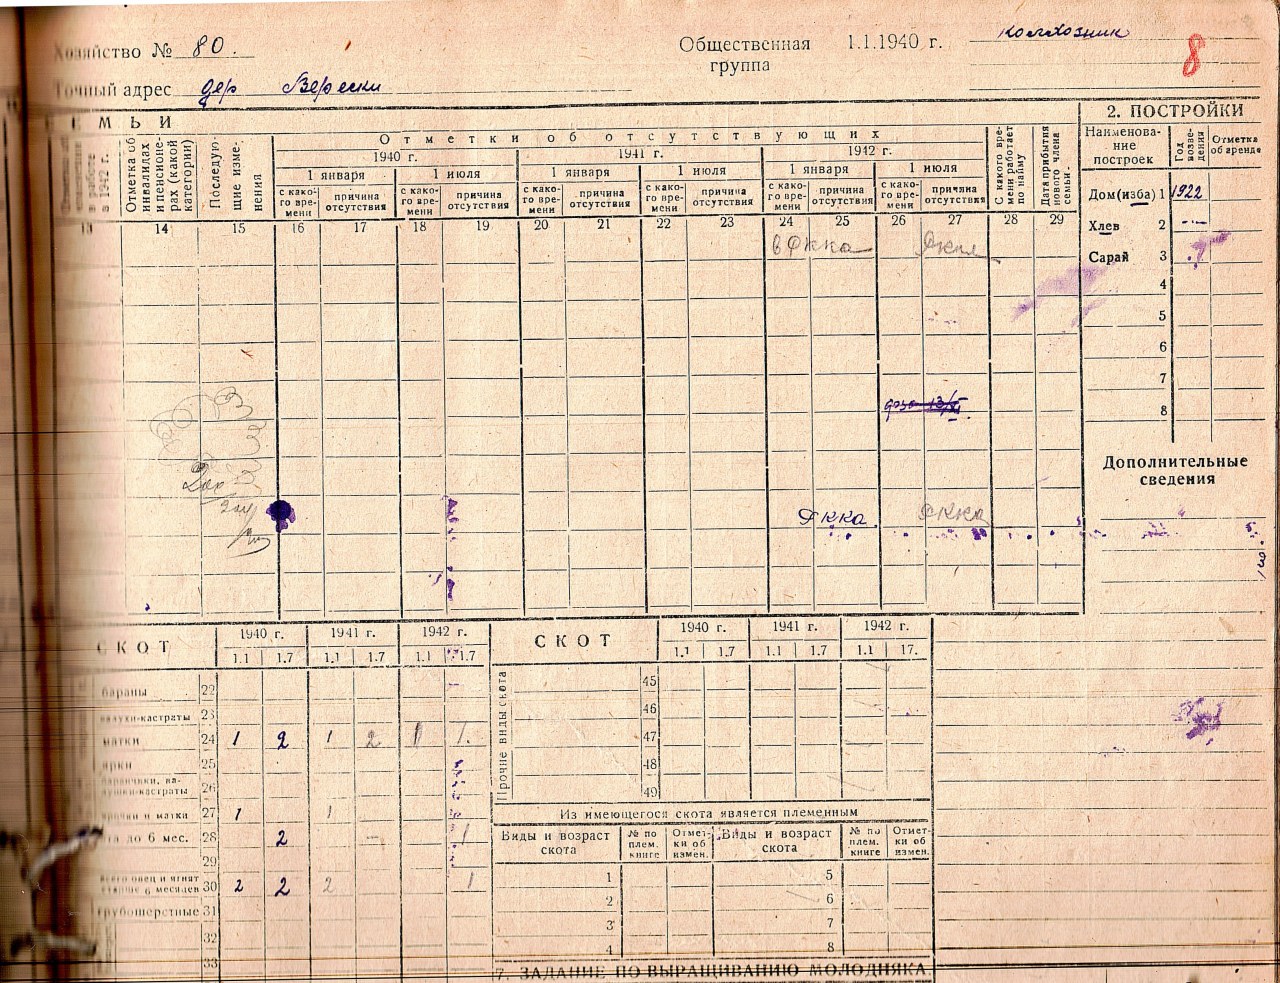 Хозяйство № 80.
Общественная группа 1.1.1940 г. колхозник
8
Точный адрес дер Верески
СЕМЬИ
2. ПОСТРОЙКИ
в 1942 г.
Отметка об инвалидах и пенсионерах (какой категории)
Последующие изменения
Отметки об отсутствующих
1940 г. 1941 г. 1942 г.
1 января 1 июля 1 января 1 июля 1 января 1 июля
с какого времени причина отсутствия с какого времени причина отсутствия с какого времени причина отсутствия с какого времени причина отсутствия с какого времени причина отсутствия с какого времени причина отсутствия
С какого времени работает по найму
Дата прибытия нового члена семьи.
Наименование построек Год возведения Отметка об аренде
13 14 15 16 17 18 19 20 21 22 23 24 25 26 27 28 29
в Ркка
Дом (изба) 1 1922
Хлев 2 -"-
Сарай 3
4
5
6
7
8
Дополнительные сведения
Ркка Ркка
СКОТ 1940 г. 1941 г. 1942 г.
1.1 1.7 1.1 1.7 1.1 1.7
бараны 22
валухи-кастраты 23
матки 24 1 2 1 2 1 1.
ярки 25
26
27 1 1
до 6 мес. 28 2 - 1
29
всего овец и ягнят старше 6 месяцев 30 2 2 2 1
грубошерстные 31
32
33
СКОТ 1940 г. 1941 г. 1942 г.
1.1 1.7 1.1 1.7 1.1 17.
Прочие виды скота
45
46
47
48
49
Из имеющегося скота является племенным
Виды и возраст скота № по плем. книге Отметки об измен. Виды и возраст скота № по плем. книге Отметки об измен.
1 5
2 6
3 7
4 8
7. ЗАДАНИЕ ПО ВЫРАЩИВАНИЮ МОЛОДНЯКА